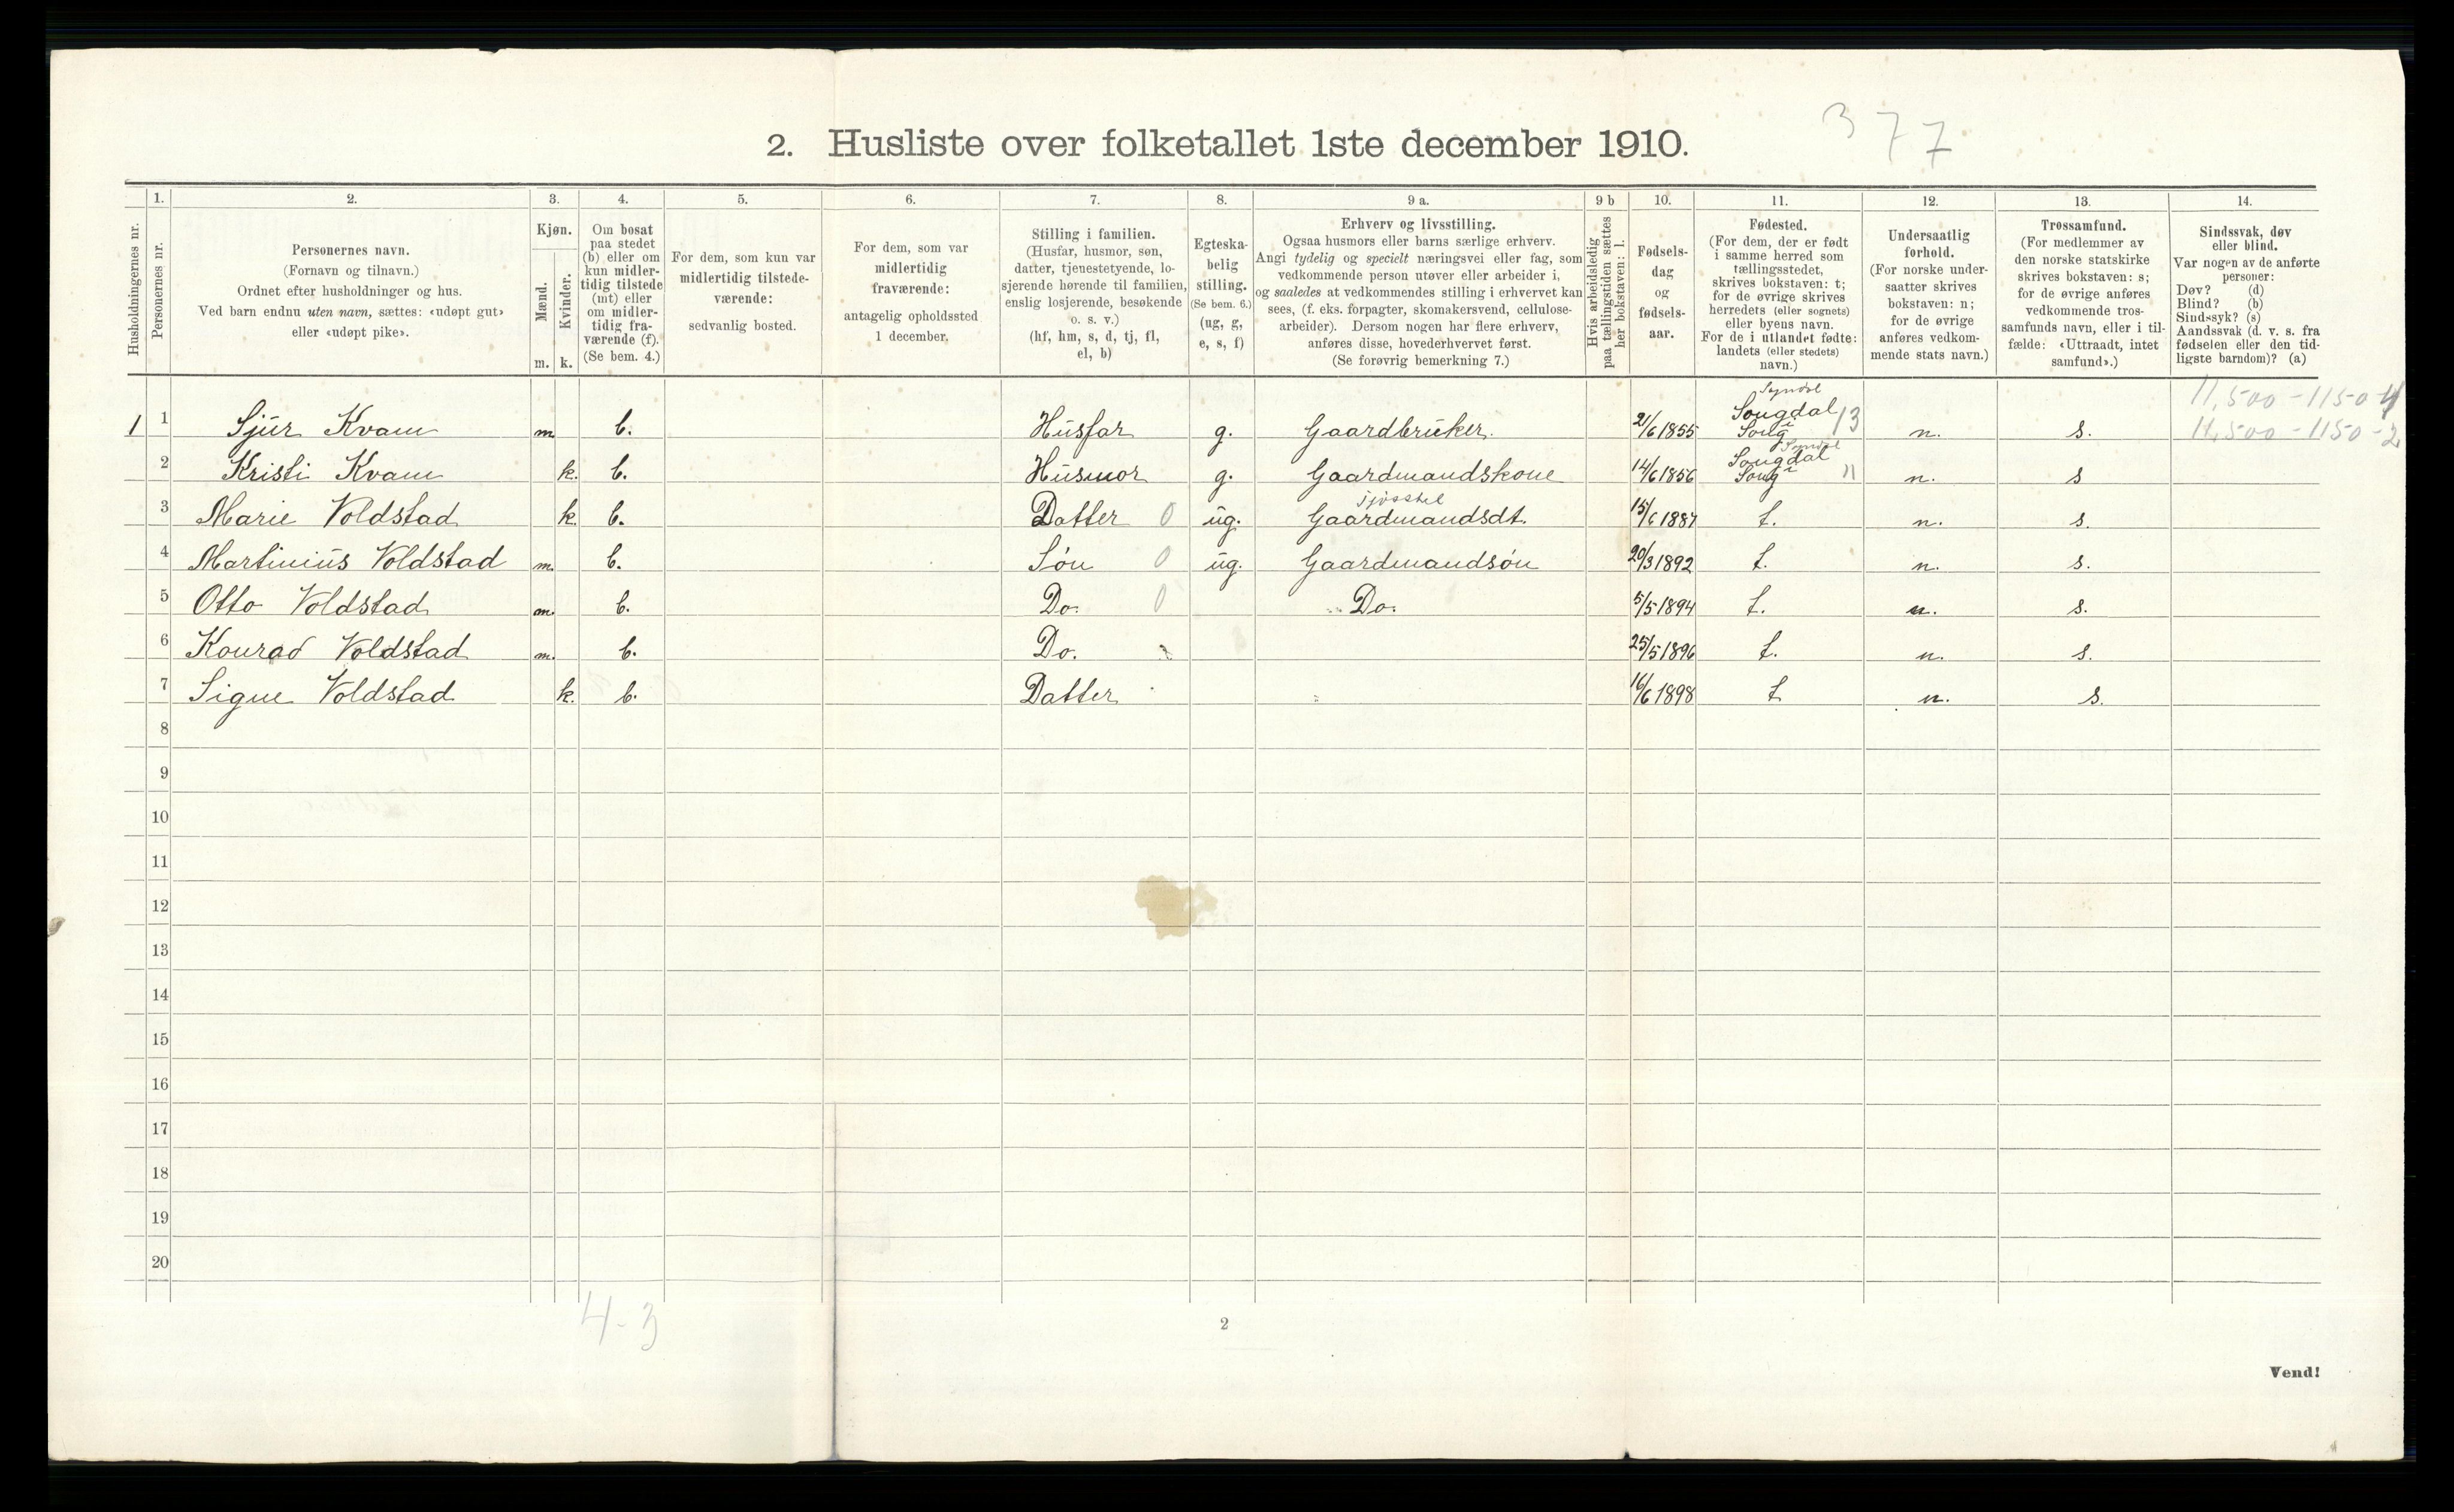 377
2. Husliste over folketallet 1ste december 1910.
Husholdningernes nr.
1.
Personernes nr.
2.
Personernes navn.
(Fornavn og tilnavn.)
Ordnet efter husholdninger og hus.
Ved barn endnu uten navn, sættes: «udøpt gut»
eller «udøpt pike».
3.
Kjøn.
Mænd.
Kvinder.
m. k.
4.
Om bosat
paa stedet
(b) eller om
kun midler-
tidig tilstede
(mt) eller
om midler-
tidig fra-
værende (f).
(Se bem. 4.)
5.
For dem, som kun var
midlertidig tilstede-
værende:
sedvanlig bosted.
6.
For dem, som var
midlertidig
fraværende:
antagelig opholdssted
1 december.
7.
Stilling i familien.
(Husfar, husmor, søn,
datter, tjenestetyende, lo-
sjerende hørende til familien,
enslig losjerende, besøkende
o. s. v.)
(hf, hm, s, d, tj, fl,
el, b)
8.
Egteska-
belig
stilling.
(Se bem. 6.)
(ug, g,
e, s, f)
9 a.
Erhverv og livsstilling.
Ogsaa husmors eller barns særlige erhverv.
Angi tydelig og specielt næringsvei eller fag, som
vedkommende person utøver eller arbeider i,
og saaledes at vedkommendes stilling i erhvervet kan
sees, (f. eks. forpagter, skomakersvend, cellulose-
arbeider). Dersom nogen har flere erhverv,
anføres disse, hovederhvervet først.
(Se forøvrig bemerkning 7.)
9 b
Hvis arbeidsledig
paa tællingstiden sættes
her bokstaven: l.
10.
Fødsels-
dag
og
fødsels-
aar.
11.
Fødested.
(For dem, der er født
i samme herred som
tællingsstedet,
skrives bokstaven: t;
for de øvrige skrives
herredets (eller sognets)
eller byens navn.
For de i utlandet fødte:
landets (eller stedets)
navn.)
12.
Undersaatlig
forhold.
(For norske under-
saatter skrives
bokstaven: n;
for de øvrige
anføres vedkom-
mende stats navn.)
13.
Trossamfund.
(For medlemmer av
den norske statskirke
skrives bokstaven: s;
for de øvrige anføres
vedkommende tros-
samfunds navn, eller i til-
fælde: «Uttraadt, intet
samfund».)
14.
Sindssvak, døv
eller blind.
Var nogen av de anførte
personer:
Døv? (d)
Blind? (b)
Sindssyk? (s)
Aandssvak (d. v. s. fra
fødselen eller den tid-
ligste barndom)? (a)
11,500 - 1150 - 4
Sougdal 13
1 1 Sjur Kvam m. b. Husfar g. Gaardbruker. 21/6 1855 n. s. 11,500 - 1150 - 2
Sougdal
2 Kristi Kvam k. b. Husmor g. Gaardmandskone 14/6 1856 n. s
3 Marie Voldstad k. b. Datter 0 ug. Gaardmandsdt. 15/6 1887 t. n. s.
4 Martinius Voldstad m. b. Søn 0 ug. Gaardmandsøn 20/3 1892 t. n. s.
5 Otto Voldstad m. b. Do. 0 Do. 5/5 1894 t. n. s.
6 Konrad Voldstad m. b. Do. 25/5 1896 t. n. s.
7 Signe Voldstad k. b. Datter 16/6 1898 t n. s.
8
9
10
11
12
13
14
15
16
17
18
19
20
4-3
2
Vend!